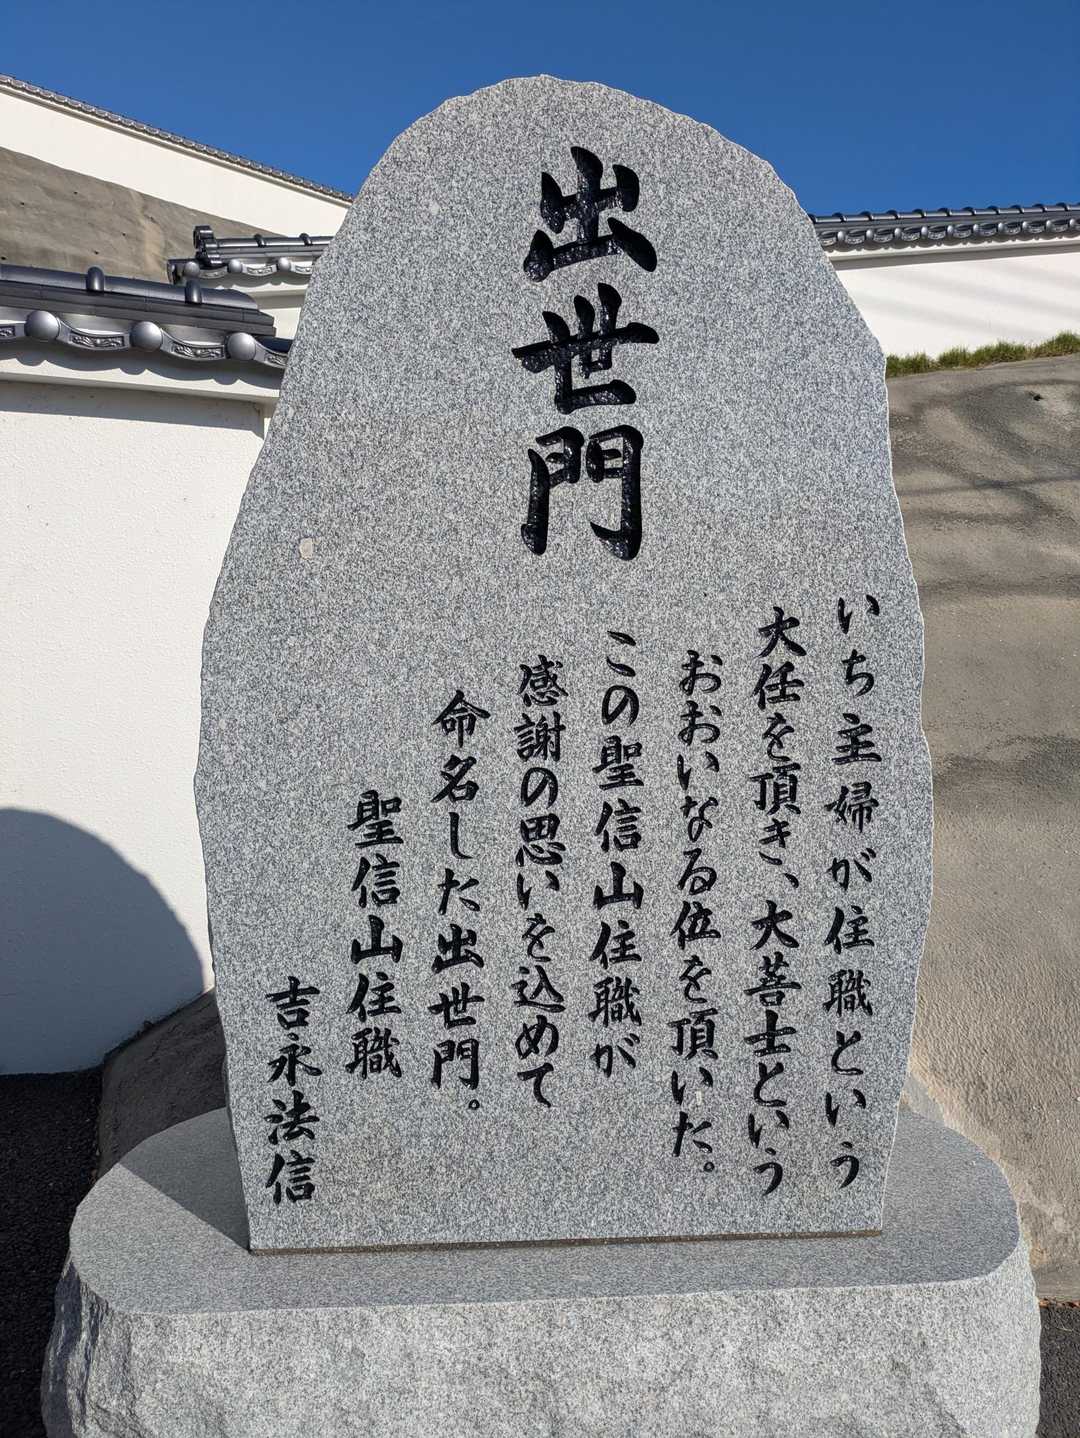 出世門
いち主婦が住職という
大任を頂き、大菩士という
おおいなる位を頂いた。
この聖信山住職が
感謝の思いを込めて
命名した出世門。
聖信山住職
吉永法信